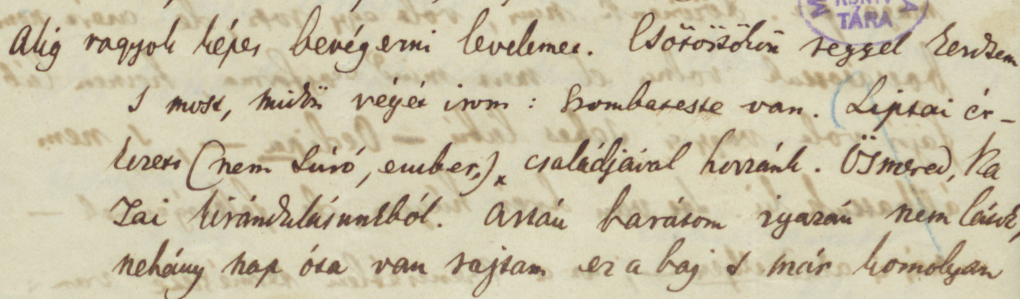 KÖNYV
TÁRA
Alig vagyok képes bevégezni levelemet. Csötörtökön reggel kezdtem
s most, midőn végét irom: Szombateste van. Lipcsai ér-
kezett (nem turó, ember,) családjával hozzánk. Ösmered, ka
zai kirándulásunkból. Aztán barátom igazán nem látok,
nehány nap óta van rajtam ez a baj s már komolyan